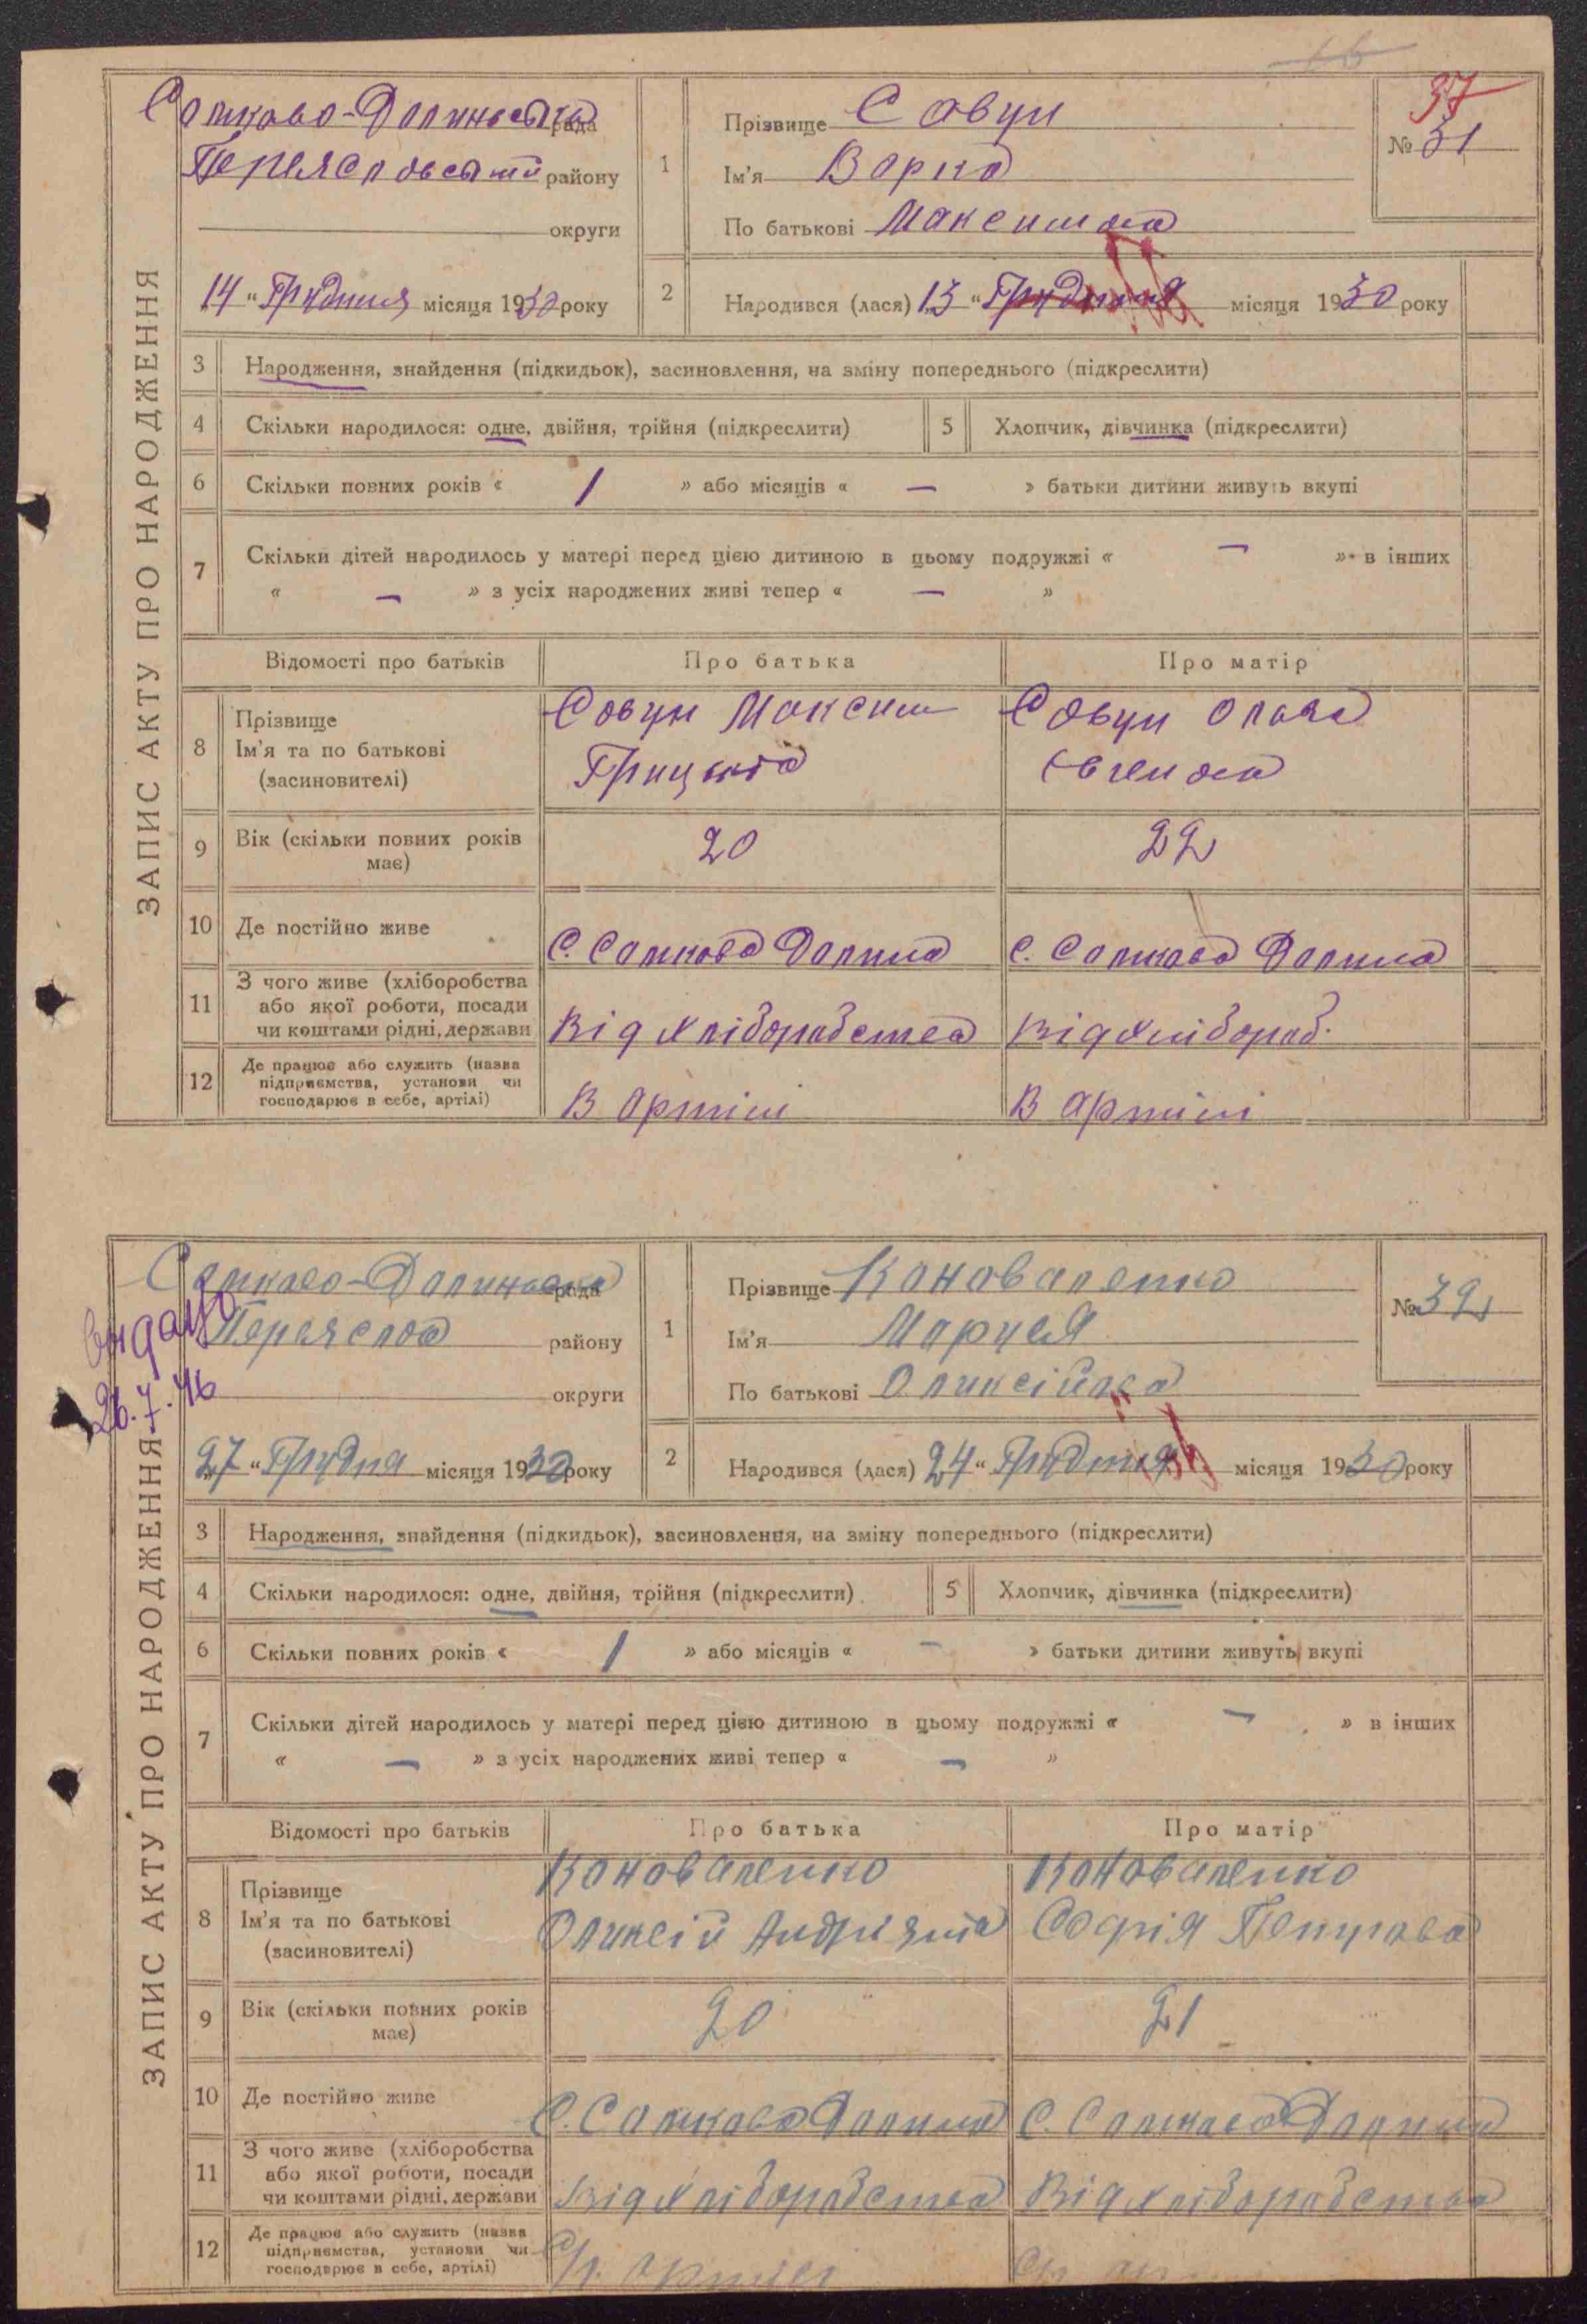 16
ЗАПИС АКТУ ПРО НАРОДЖЕННЯ
Сомково-Долинська рада
Переяславський району
округи
14 „ Грудния місяця 1930 року
1
Прізвище Совун
Ім'я Варка
По батькові Максимова
37
№ 31
2
Народився (лася) 13 „ Грудния місяця 1930 року
3 Народження, знайдення (підкидьок), засиновлення, на зміну попереднього (підкреслити)
4 Скільки народилося: одне, двійня, трійня (підкреслити) 5 Хлопчик, дівчинка (підкреслити)
6 Скільки повних років « 1 » або місяців « — » батьки дитини живуть вкупі
7 Скільки дітей народилось у матері перед цією дитиною в цьому подружжі « — » в інших
« — » з усіх народжених живі тепер « — »
Відомості про батьків Про батька Про матір
8 Прізвище
Ім'я та по батькові
(засиновителі)
Совун Максим
Грицків
Совун
9 Вік (скільки повних років має) 20 22
10 Де постійно живе С. Сомкова Долина С. Сомкова Долина
11 З чого живе (хліборобства
або якої роботи, посади
чи коштами рідні, держави
Від Хліборобства Від Хлібороб.
12 Де працює або служить (назва
підприємства, установи чи
господарює в себе, артілі)
В артілі В артілі
ЗАПИС АКТУ ПРО НАРОДЖЕННЯ
Сомково-Долинська рада
видано
Переяслов району
26.7.46
округи
27 „ Грудня місяця 1930 року
1
Прізвище Коноваленко
Ім'я Марuся
По батькові Оликсійова
№ 32
2
Народився (лася) 24 „ Грудния місяця 1930 року
3 Народження, знайдення (підкидьок), засиновлення, на зміну попереднього (підкреслити)
4 Скільки народилося: одне, двійня, трійня (підкреслити) 5 Хлопчик, дівчинка (підкреслити)
6 Скільки повних років « 1 » або місяців « — » батьки дитини живуть вкупі
7 Скільки дітей народилось у матері перед цією дитиною в цьому подружжі « — » в інших
« — » з усіх народжених живі тепер « — »
Відомості про батьків Про батька Про матір
8 Прізвище
Ім'я та по батькові
(засиновителі)
Коноваленко
Оликсій
Коноваленко
Софія Петрова
9 Вік (скільки повних років має) 20 21
10 Де постійно живе С. Сомкова Долина С. Сомкова Долина
11 З чого живе (хліборобства
або якої роботи, посади
чи коштами рідні, держави
Від Хліборобства Від Хліборобства
12 Де працює або служить (назва
підприємства, установи чи
господарює в себе, артілі)
артілі